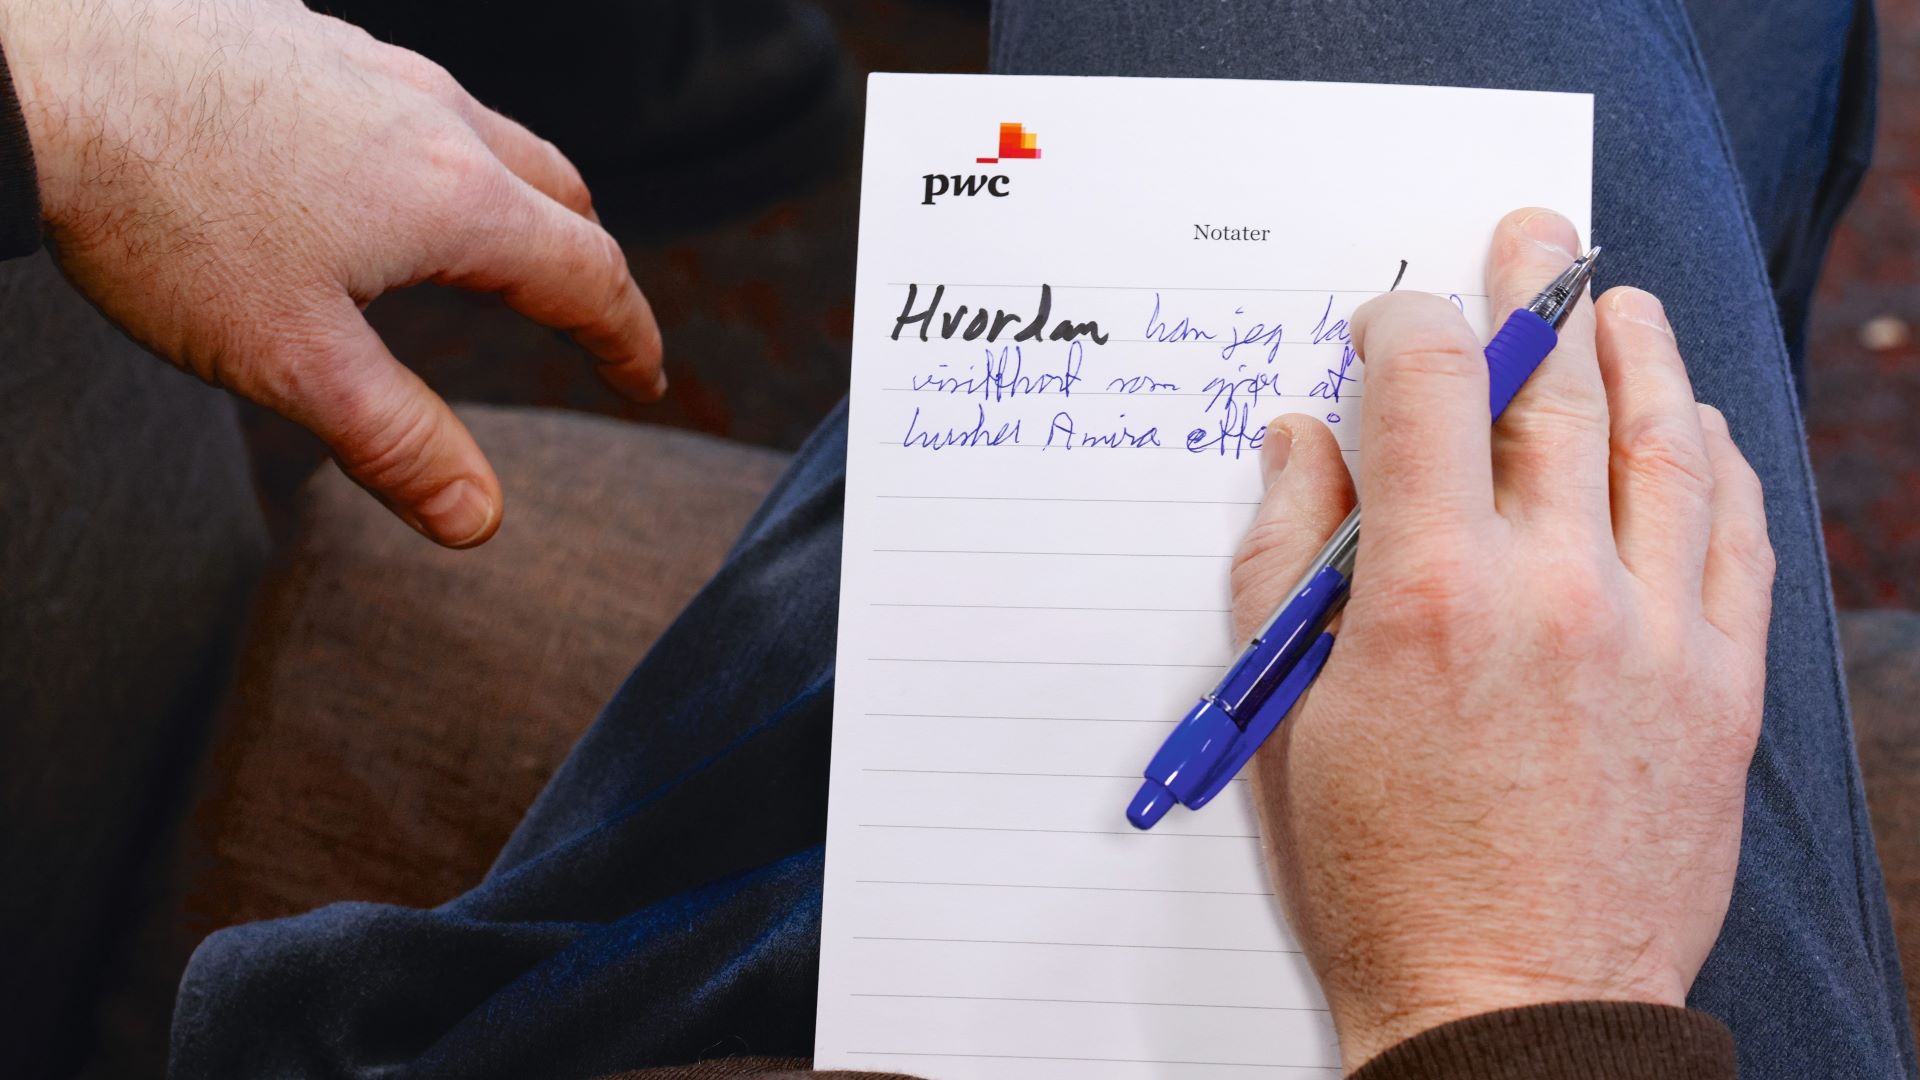 pwc
Notater
Hvordan kan jeg la
visittkort som gjør at
husker Amira